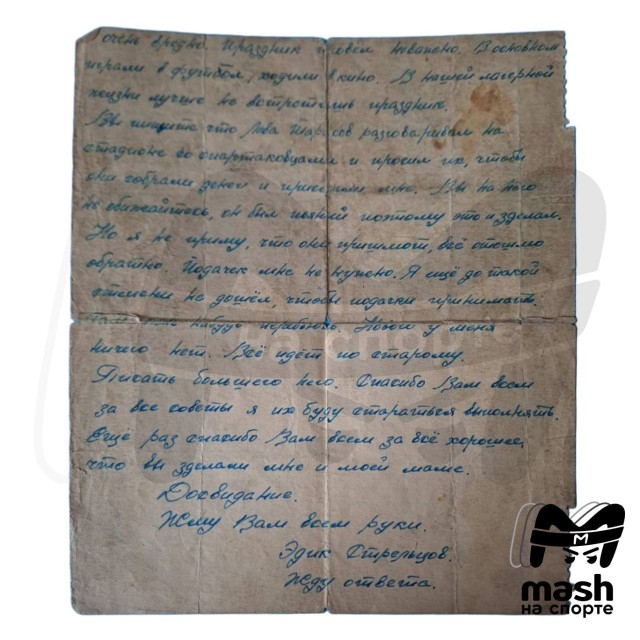 очень вредно. Праздник провёл неважно. В основном
играли в футбол, ходили в кино. В нашей лагерной
жизни лучше не встретишь праздник.
Вы пишите что Лёва Тарасов разговаривал на
стадионе со спартаковцами и просил их, чтобы
они собрали денег и прислали мне. Вы на него
не обижайтесь, он был пьяный поэтому это и зделал.
Но я не приму, что они пришлют, всё отошлю
обратно. Подачек мне не нужно. Я ещё до такой
степени не дошёл, чтобы подачки принимать.
нибудь перебьюсь. Нового у меня
ничего нет. Всё идёт по старому.
Писать больше нечего. Спасибо Вам всем
за все советы я их буду стараться выполнять.
Ещё раз спасибо Вам всем за всё хорошее,
что вы зделали мне и моей маме.
Досвидание.
Жму Вам всем руки.
Эдик Стрельцов.
Жду ответа.
mash
на спорте